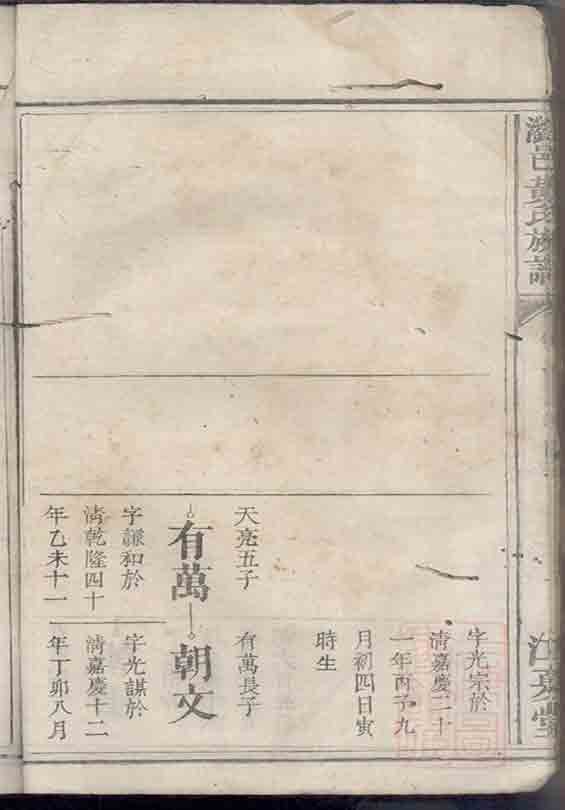 瀏邑黃氏族譜
江夏堂
天亮五子
有萬
字謙和於
清乾隆四十
年乙未十一
字光宗於
清嘉慶二十
一年丙子九
月初四日寅
時生
有萬長子
朝文
字光謀於
清嘉慶十二
年丁卯八月